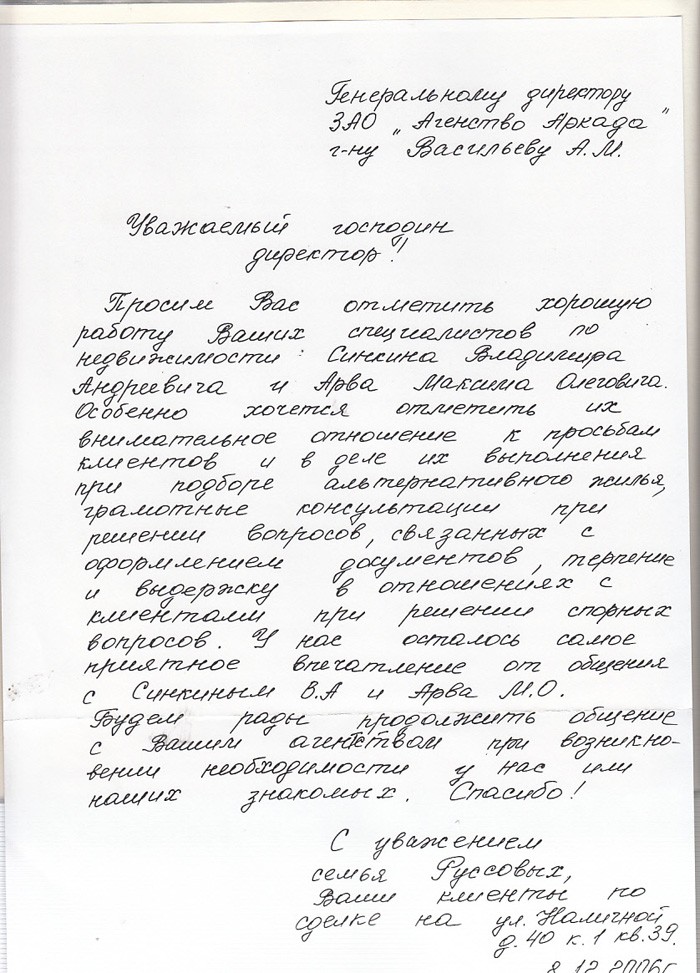 Генеральному директору
ЗАО „Агенство Аркада"
г-ну Васильеву А.М.
Уважаемый господин
директор!
Просим Вас отметить хорошую
работу Ваших специалистов по
недвижимости: Синкина Владимира
Андреевича и Арва Максима Олеговича.
Особенно хочется отметить их
внимательное отношение к просьбам
клиентов и в деле их выполнения
при подборе альтернативного жилья,
грамотные консультации при
решении вопросов, связанных с
оформлением документов, терпение
и выдержку в отношениях с
клиентами при решении спорных
вопросов. У нас осталось самое
приятное впечатление от общения
с Синкиным В.А и Арва М.О.
Будем рады продолжить общение
с Вашим агентством при возникно-
вении необходимости у нас или
наших знакомых. Спасибо!
С уважением
семья Руссовых,
Ваши клиенты по
сделке на ул. Наличной
д.40 к.1 кв.39.
8.12.2006г